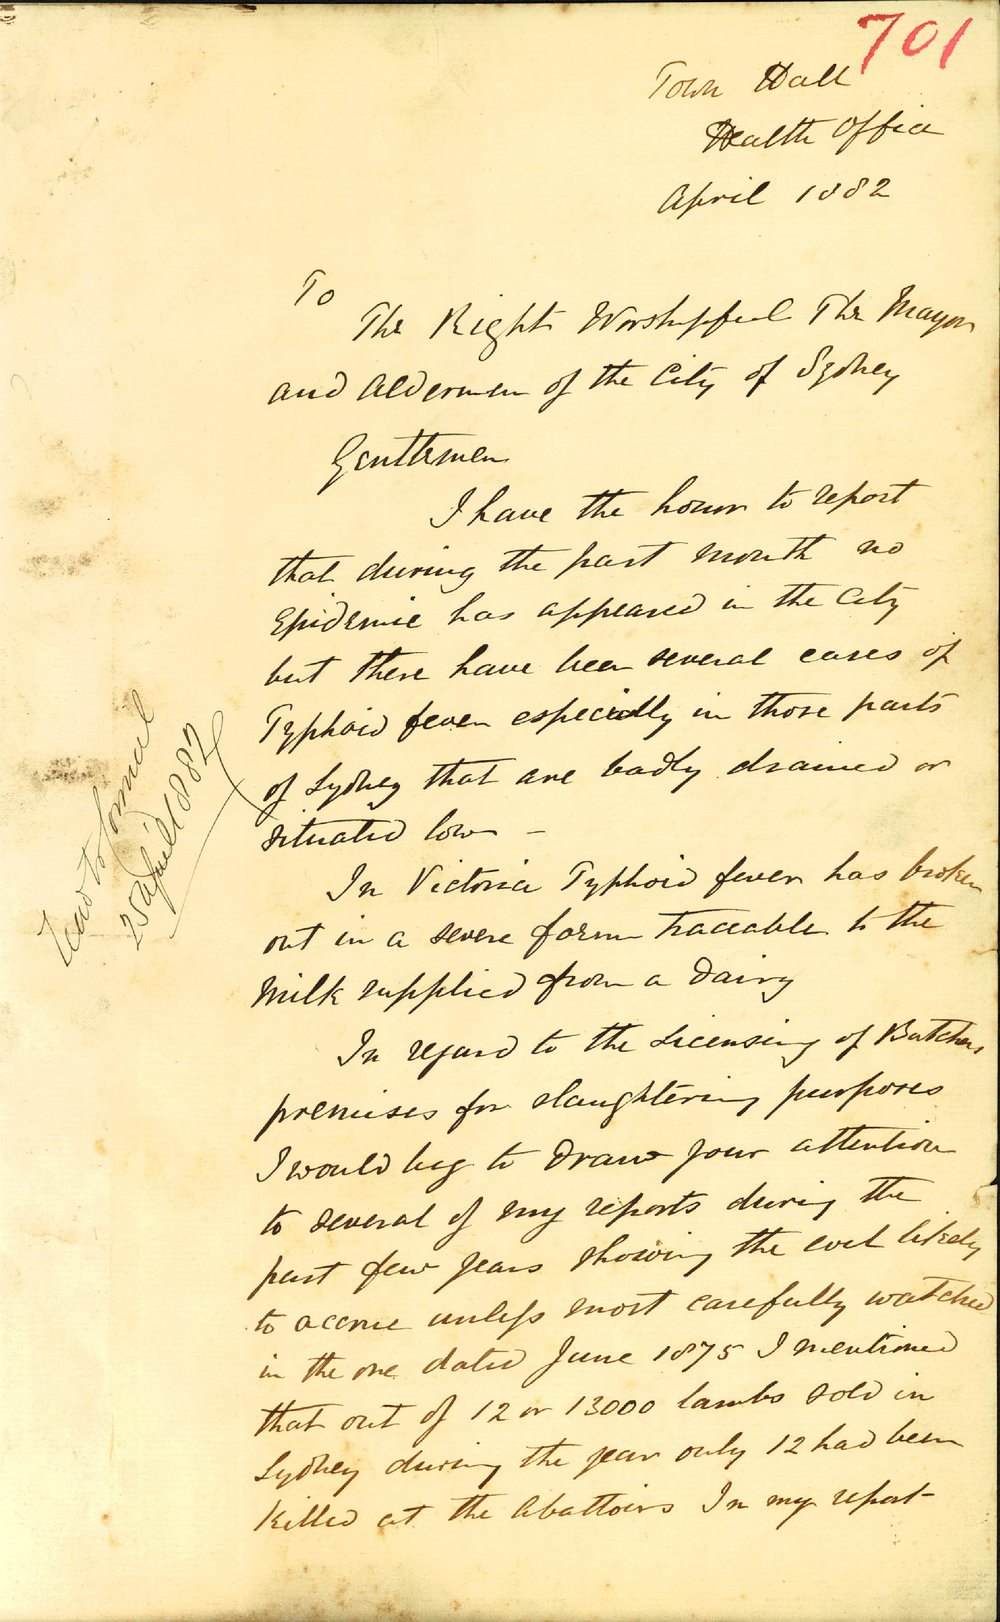 701
Town Hall
Health Office
April 1882
To
The Right Worshipful The Mayor
and Aldermen of the City of Sydney
Gentlemen
I have the honor to report
that during the past month no
Epidemic has appeared in the City
but there have been several cases of
Typhoid fever especially in those parts
of Sydney that are badly drained or
situated low –
In Victoria Typhoid fever has broken
out in a severe form traceable to the
Milk supplied from a Dairy
In regard to the Licensing of Butchers
premises for slaughtering purposes
I would beg to draw your attention
to several of my reports during the
past few years showing the evil likely
to accrue unless most carefully watched
in the one dated June 1875 I mentioned
that out of 12 or 13000 lambs sold in
Sydney during the year only 12 had been
Killed at the Abattoirs In my report
25 April 1882